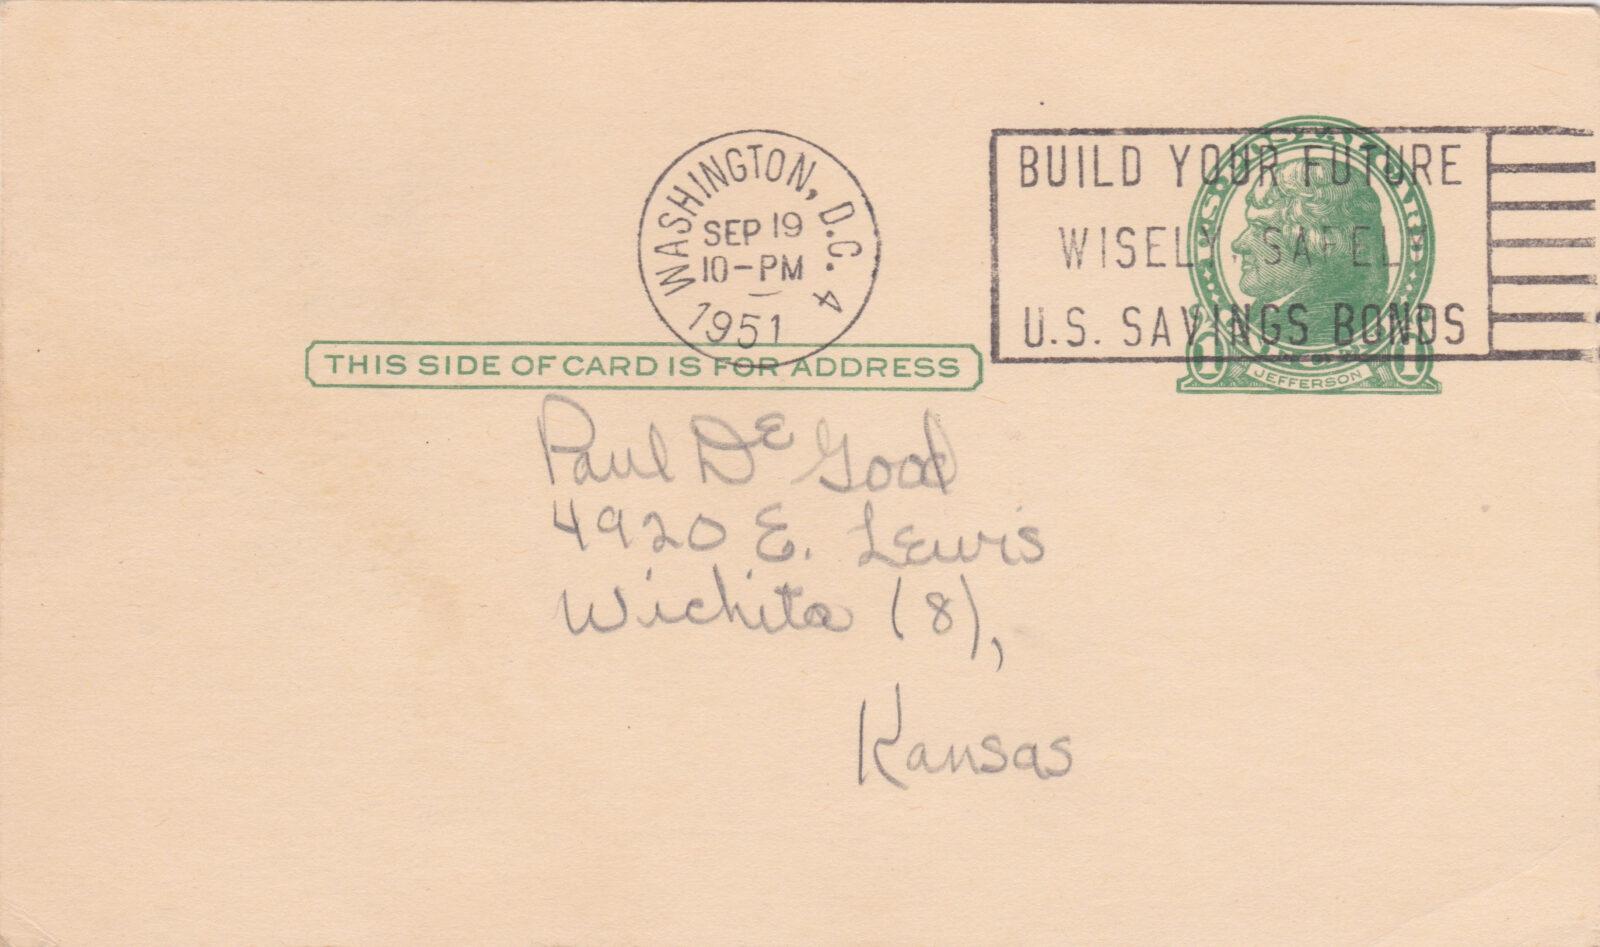 WASHINGTON, D.C. 4
SEP 19
10-PM
1951
BUILD YOUR FUTURE
WISELY, SAFEL
U.S. SAVINGS BONDS
1 1
JEFFERSON
THIS SIDE OF CARD IS FOR ADDRESS
Paul DE Good
4920 E. Lewis
Wichita (8),
Kansas